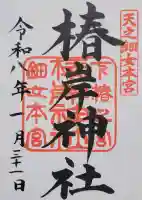 天之鈿女本宮
椿岸神社
鈿女本宮
令和八年一月三十一日